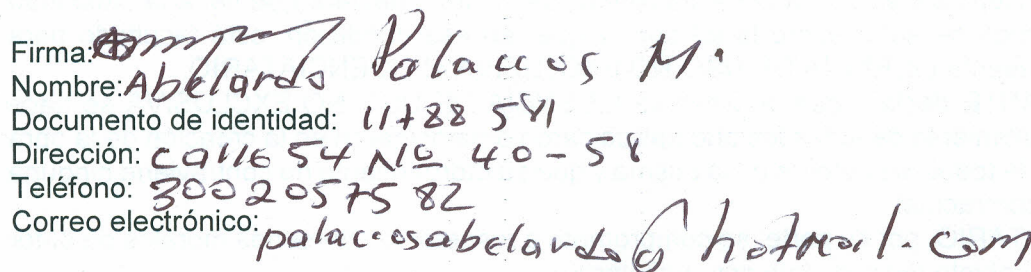 Firma:
Nombre: Abelardo Palacios M.
Documento de identidad: 11788 541
Dirección: calle 54 No 40-58
Teléfono: 3002057582
Correo electrónico: palaciosabelardo@hotmail.com